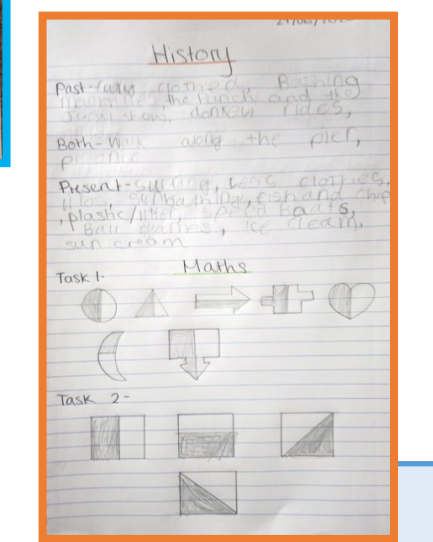 History
Past-fully clothed, Bathing
machines, the Punch and the
Judy show, donkey rides,
Both-Walk along the pier,
picnic
Present-surfing, less clothes,
sunbathing, fish and chip
, plastic/litter, speed boats,
Ball games, ice cream,
sun cream
Maths
Task 1-
Task 2-